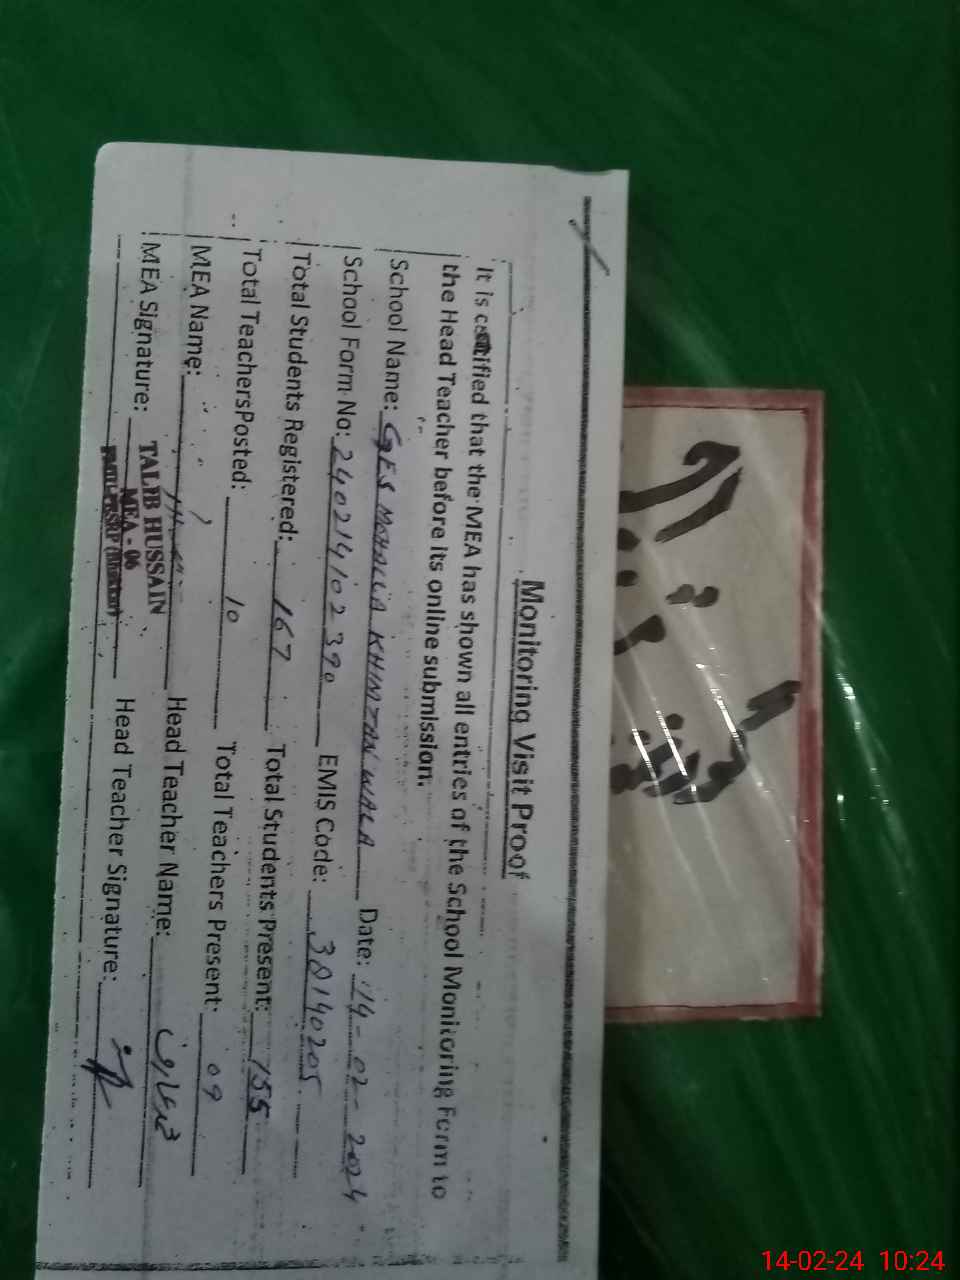 Monitoring Visit Proof
It is certified that the MEA has shown all entries of the School Monitoring Form to
the Head Teacher before its online submission.
School Name: GES MOHALLA KHIMZAN WALA Date: 14-02-2024
School Form No: 240214102390 EMIS Code: 38140205
Total Students Registered: 167 Total Students Present: 155
Total TeachersPosted: 10 Total Teachers Present: 09
MEA Name: Head Teacher Name:
TALIB HUSSAIN
MEA Signature: MEA - 06 Head Teacher Signature:
14-02-24 10:24